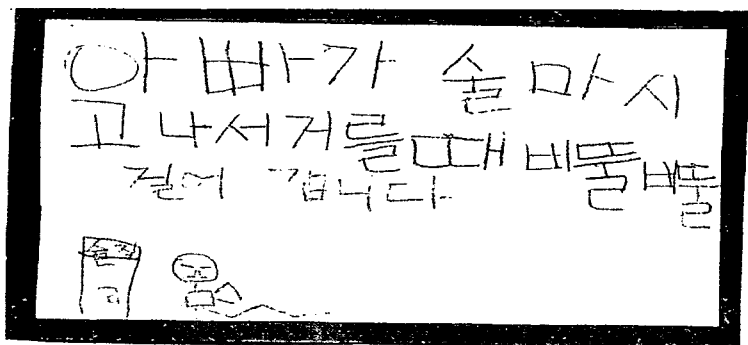 아빠가 술마시
고 나서 거를때 비뚤비뚤
걸어 갑니다.